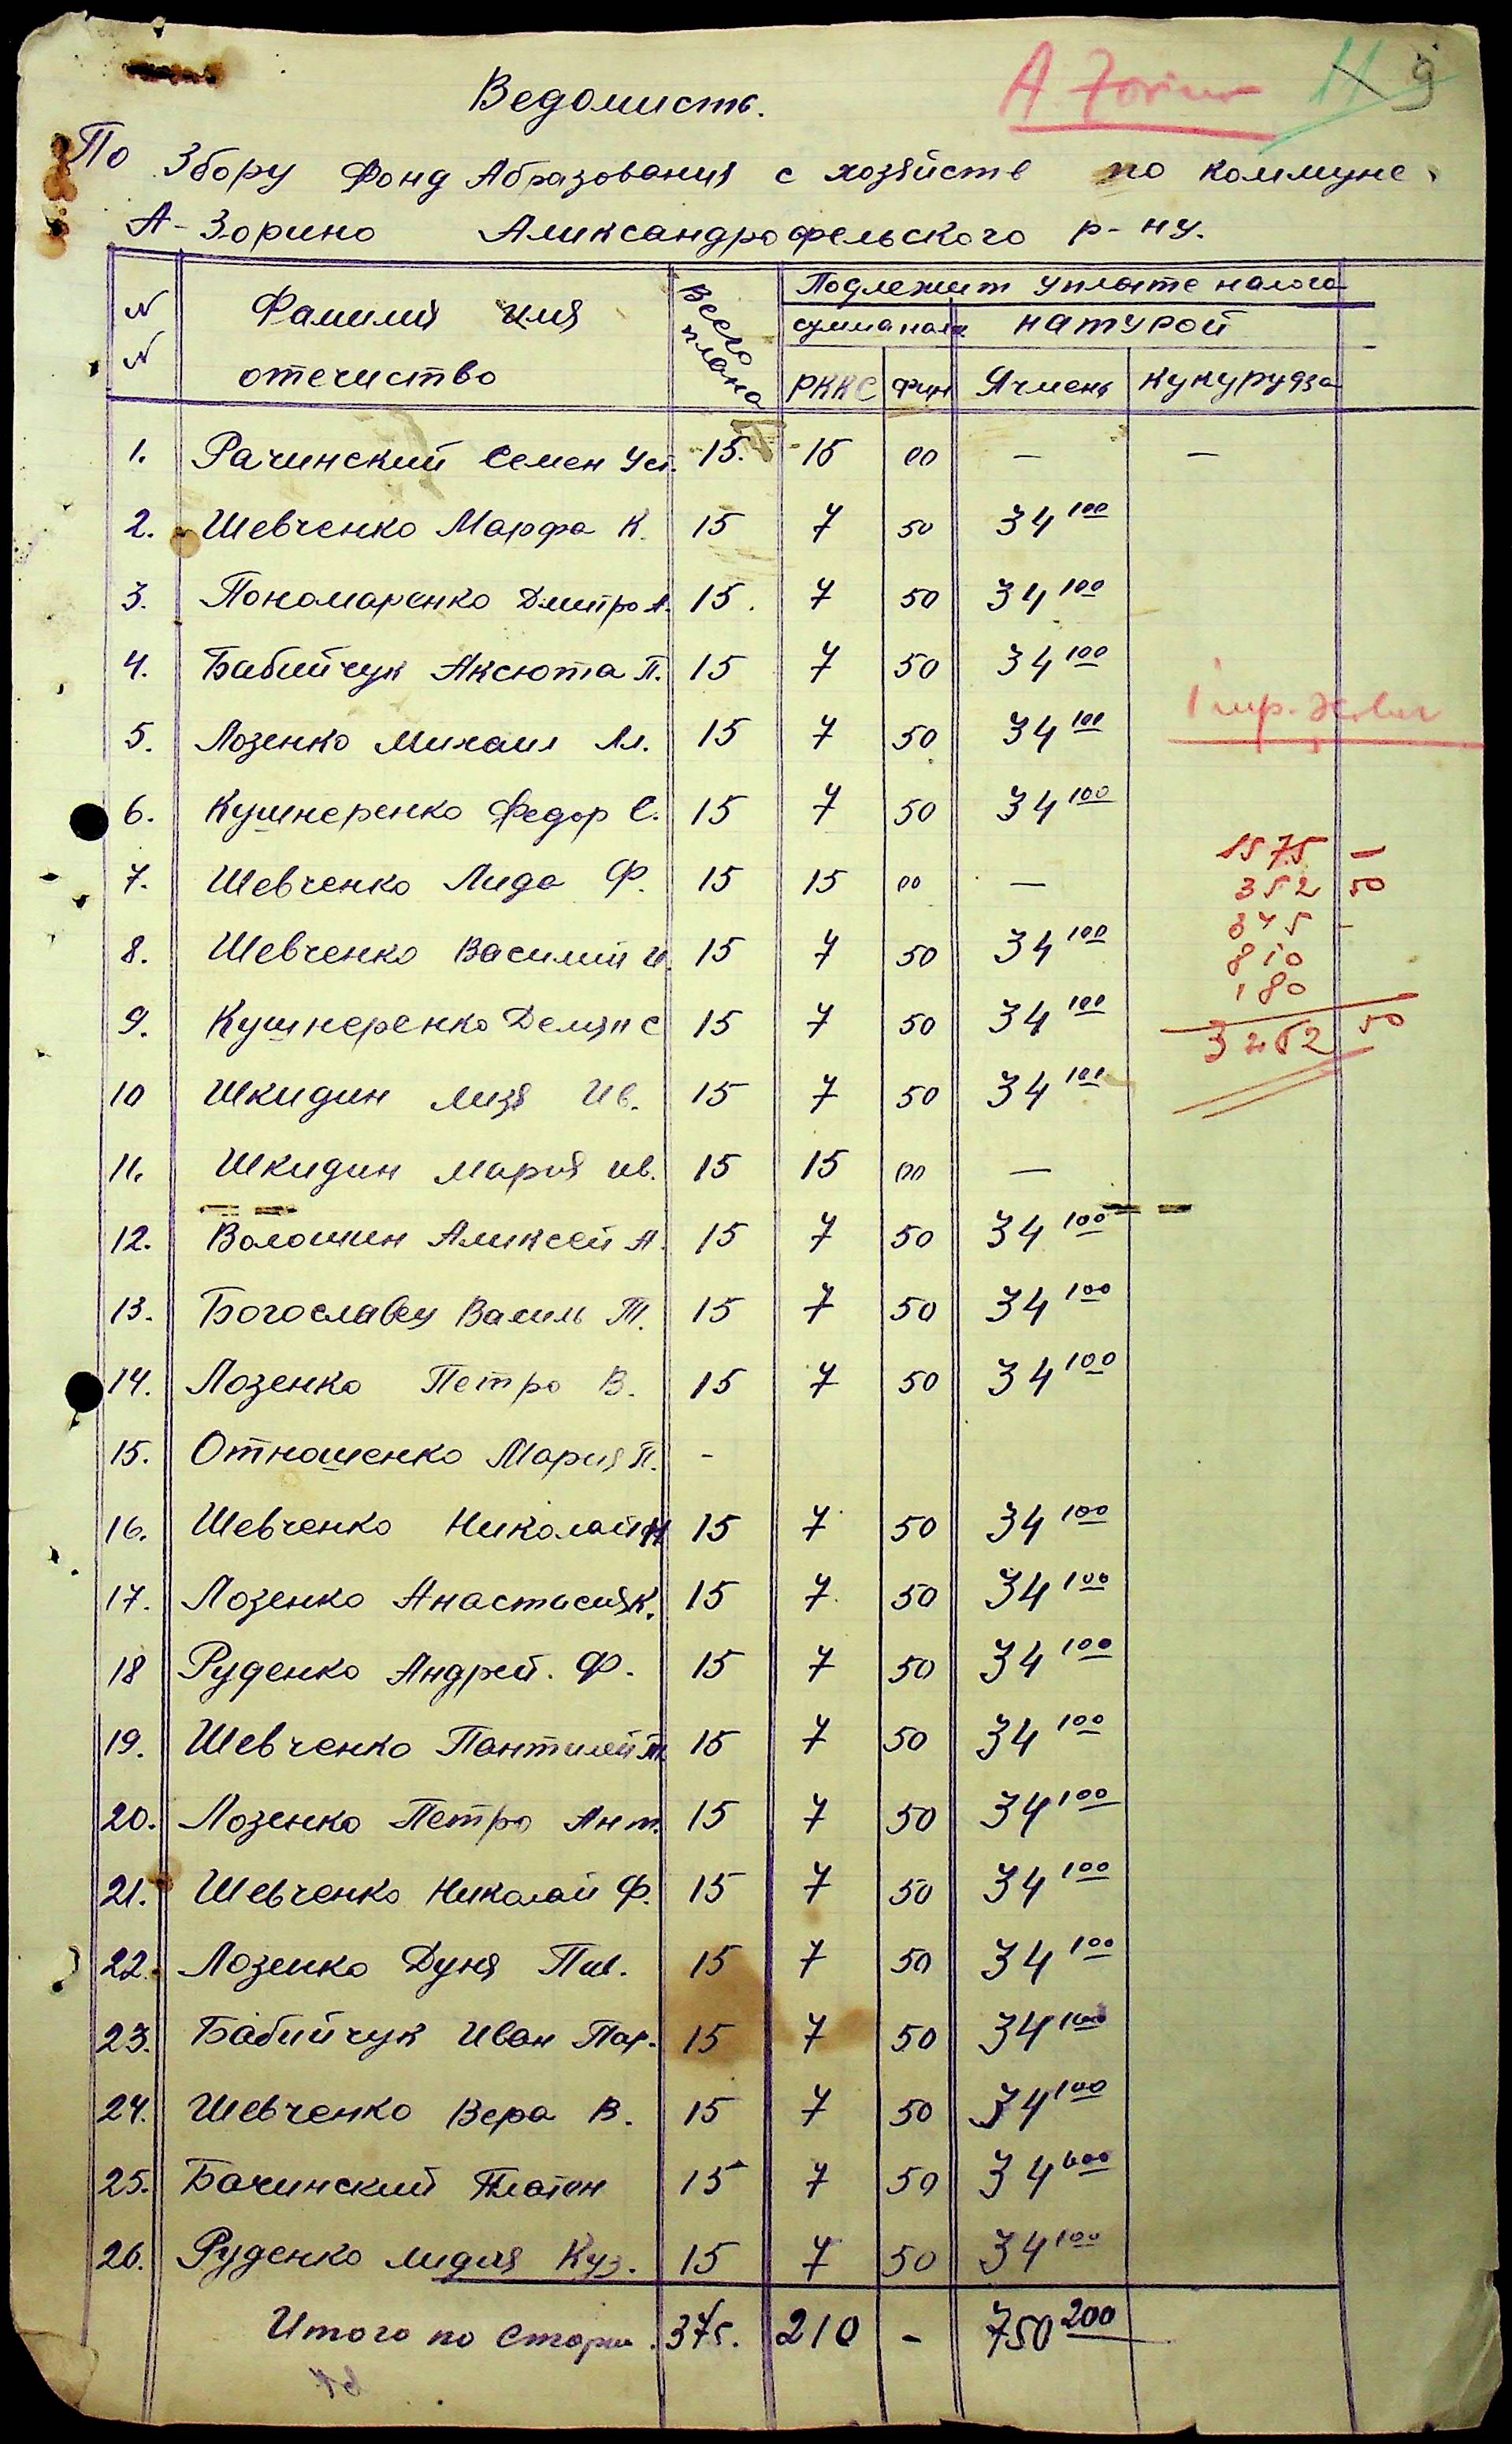 A Zorino 11 9
Ведомисть.
По Збору Фонд Абразования с хозяйств по коммуне
А-Зорино Александрофельского р-ну.
N N Фамилия имя отечиство Всего плана Подлежит уплате налога
сума нала натурой
РККС Фин Ячмень Кукурудза
1. Рачинский Семен Уст. 15. 15 00 — —
2. Шевченко Марфа К. 15 7 50 34 100
3. Пономаренко Дмитро А. 15. 7 50 34 100
4. Бабийчук Аксюта П. 15 7 50 34 100
5. Лозенко Михаил Ал. 15 7 50 34 100
6. Кушнеренко Федор С. 15 7 50 34 100
1575 —
7. Шевченко Лида Ф. 15 15 00 —
352 50
345 -
8. Шевченко Василий И. 15 7 50 34 100
810
180
9. Кушнеренко Демян С 15 7 50 34 100
3262 50
10 Шкидин Лизя Ив. 15 7 50 34 100
11. Шкидин Мария Ив. 15 15 00 —
12. Волошин Аликсей А. 15 7 50 34 100
13. Богославец Василь Т. 15 7 50 34 100
14. Лозенко Петро В. 15 7 50 34 100
15. Отношенко Мария П. -
16. Шевченко Николай Н 15 7 50 34 100
17. Лозенко Анастасия К. 15 7 50 34 100
18 Руденко Андрей. Ф. 15 7 50 34 100
19. Шевченко Пантилей Т. 15 7 50 34 100
20. Лозенко Петро Ант. 15 7 50 34 100
21. Шевченко Николай Ф. 15 7 50 34 100
22. Лозенко Дуня Пав. 15 7 50 34 100
23. Бабийчук Иван Пар. 15 7 50 34 100
24. Шевченко Вера В. 15 7 50 34 100
25. Бачинский Платон 15 7 50 34 600
26. Руденко Лидия Куз. 15 7 50 34 100
Итого по Сторін. 375. 210 - 750 200